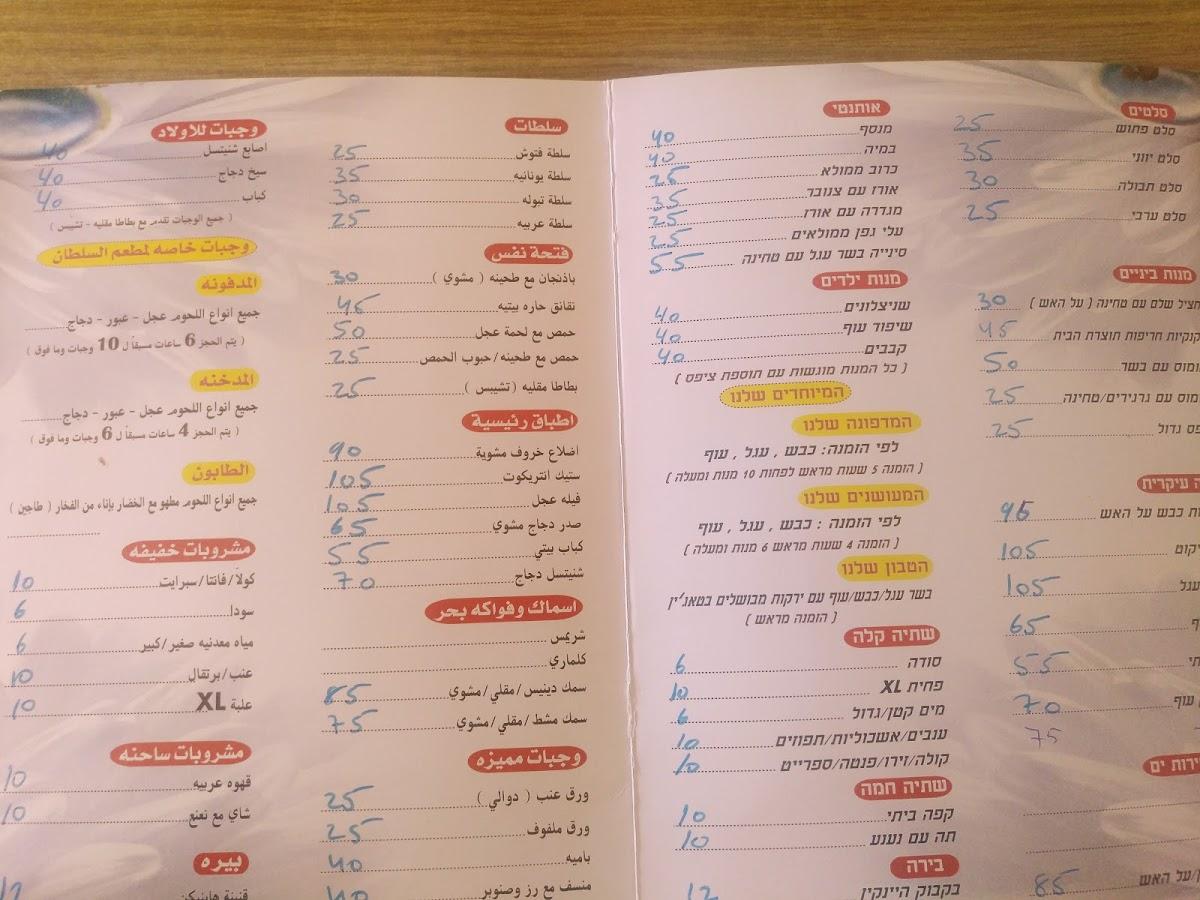 سلطات
سلطة فتوش 25
سلطة يونانيه 35
سلطة تبوله 30
سلطة عربيه 25
فتحة نفس
باذنجان مع طحينه ( مشوي ) 30
نقانق حاره بيتيه 45
حمص مع لحمة عجل 50
حمص مع طحينه/حبوب الحمص 25
بطاطا مقليه (تشيبس ) 25
اطباق رئيسية
اضلاع خروف مشوية 90
ستيك انتريكوت 105
فيله عجل 105
صدر دجاج مشوي 65
كباب بيتي 55
شنيتسل دجاج 70
اسماك وفواكه بحر
شريمس
كلماري
سمك دينيس/مقلي/مشوي 85
سمك مشط/مقلي/مشوي 75
وجبات مميزه
ورق عنب ( دوالي ) 25
ورق ملفوف 25
باميه 40
منسف مع رز وصنوبر 40
وجبات للاولاد
اصابع شنيتسل 40
سيخ دجاج 40
كباب 40
( جميع الوجبات تقدم مع بطاطا مقليه - تشيبس )
وجبات خاصه لمطعم السلطان
المدفونه
جميع انواع اللحوم عجل - عبور - دجاج
( يتم الحجز 6 ساعات مسبقاً ل 10 وجبات وما فوق )
المدخنه
جميع انواع اللحوم عجل - عبور - دجاج
( يتم الحجز 4 ساعات مسبقاً ل 6 وجبات وما فوق )
الطابون
جميع انواع اللحوم مطهو مع الخضار بإناء من الفخار ( طاجين )
مشروبات خفيفه
كولا/فانتا/سبرايت 10
سودا 6
مياه معدنيه صغير/كبير 6
عنب/برتقال 10
علبة XL 10
مشروبات ساخنه
قهوه عربيه 10
شاي مع نعنع 10
بيره
قنينة هاينيكن 12
סלטים
סלט פתוש 25
סלט יווני 35
סלט תבולה 30
סלט ערבי 25
מנות ביניים
חציל שלם עם טחינה ( על האש ) 30
חריפות תוצרת הבית 45
עם בשר 50
עם גרגירים/טחינה 25
גדול 25
עיקרית
כבש על האש 95
105
105
65
55
עוף 70
75
ים
על האש 85
אותנטי
מנסף 40
במיה 40
כרוב ממולא 25
אורז עם צנובר 35
מגדרה עם אורז 25
עלי גפן ממולאים 25
סינייה בשר עגל עם טחינה 55
מנות ילדים
שניצלונים 40
שיפוד עוף 40
קבבים 40
( כל המנות מוגשות עם תוספת ציפס )
המיוחדים שלנו
המדפונה שלנו
לפי הומנה: כבש , עגל , עוף
( הומנה 5 שעות מראש לפחות 10 מנות ומעלה )
המעושנים שלנו
לפי הומנה : כבש , עגל , עוף
( הומנה 4 שעות מראש 6 מנות ומעלה )
הטבון שלנו
בשר עגל/כבש/עוף עם ירקות מבושלים בטאג'ין
( הומנה מראש )
שתיה קלה
סודה 6
פחית XL 10
מים קטן/גדול 6
ענבים/אשכוליות/תפוזים 10
קולה/זירו/פנטה/ספרייט 10
שתיה חמה
קפה ביתי 10
תה עם נענע 10
בירה
בקבוק היינקין 12